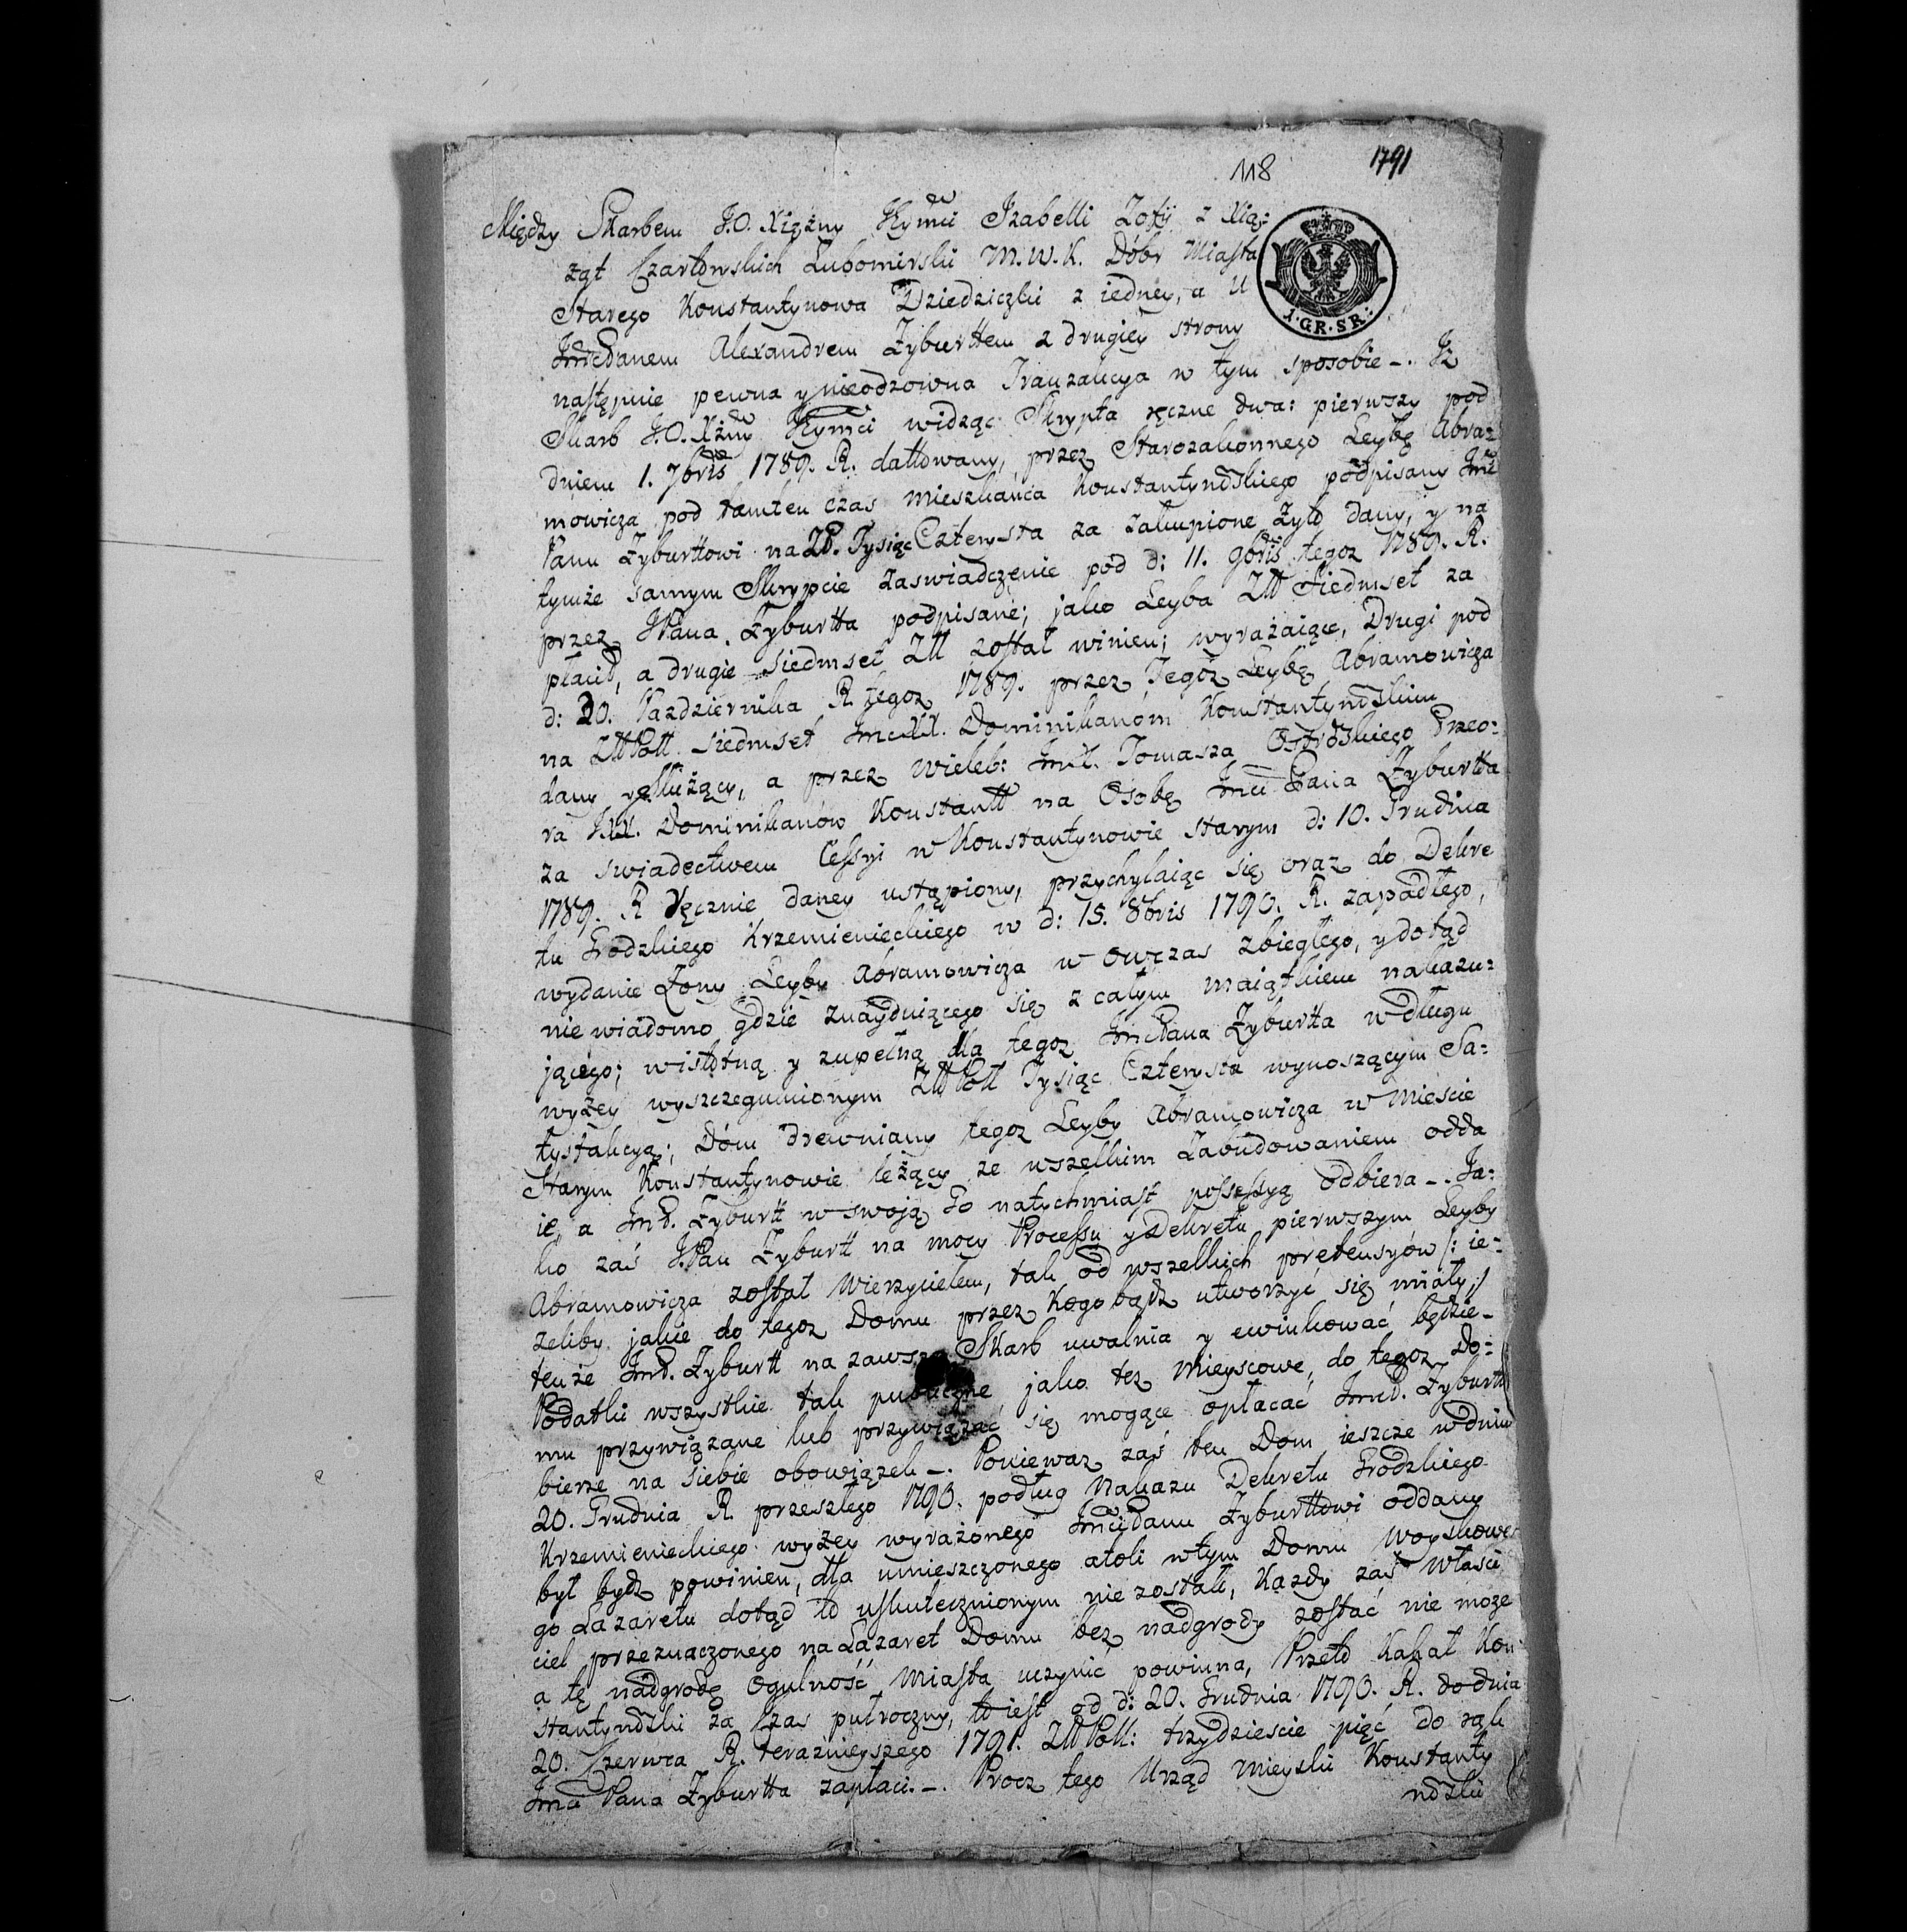 118 1791
Między Skarbem J.O. Xiężny Jeymci Izabelli Zofij z Xią:
żąt Czartoryskich Lubomirski M.W.K. Dóbr Miasta
Starego Konstantynowa Dziedziczki z iedney, a U
JmcPanem Alexandrem Zyburttem z drugiey strony
1.GR.SR:
następnie pewna y nieodzowna Tranzakcya w tym sposobie –. Iż
Skarb J.O. Xżny Jeymci widząc Skrypta ręczne dwa: pierwszy pod
dniem 1. 7bris 1789. R. dattowany, przez Starozakonnego Leybę Abra:
mowicza pod tamten czas Mieszkańca Konstantynowskiego podpisany Jmć
Panu Zyburttowi na ZP. Tysiąc Czterysta za zakupione Zyto dany, y na
tymże samym Skrypcie zaswiadczenie pod d: 11. 9bris tegoz 1789. R.
przez JPana Zyburtta podpisane; jako Leyba Złł Siedmset za
płacił, a drugie siedmset Złł został winien; wyrażaiące, Drugi pod
d: 20. Pazdziernika R tegoz 1789. przez Tegoż Leybę Abramowicza
na ZłłPoll siedmset JmcXX. Dominikanom Konstantynowskim
dany y służący, a przez Wieleb: JmX. Tomasza Ostrowskiego Przeo:
ra JXX. Dominikanów Konstantt na Osobę Jmci Pana Zyburtta
za swiadectwem Cessyi w Konstantynowie starym d: 10. Grudnia
1789. R ręcznie daney ustąpiony, przychylaiąc się oraz do Dekre
tu Grodzkiego Krzemienieckiego w d: 15. 8bris 1790. R. zapadłego,
wydanie Zony Leyby Abramowicza w owczas zbiegłego, y dotąd
nie wiadomo gdzie znayduiącego się z całym maiątkiem nakazu:
jącego; wistotną y zupełną dla tegoz JmcPana Zyburtta w długu
wyżey wyszczegulnionym ZłłPoll Tysiąc Czterysta wynoszącym Sa:
tysfakcyą; Dóm drewniany tegoz Leyby Abramowicza w Mieście
Starym Konstantynowie leżący ze wszelkim Zabudowaniem odda
ie, a JmP. Zyburtt w swoją Go natychmiast possessyą odbiera –. Ja:
ko zaś JPan Zyburtt na mocy Processu y Dekretu pierwszym Leyby
Abramowicza został Wierzycielem, tak od wszelkich pretensyów /: ie:
zeliby jakie do tegoz Domu przez kogo bądz utworzyć się miały,:/
tenże JmP. Zyburtt na zawsze Skarb uwalnia y ewinkować będzie –
Podatki wszystkie tak publiczne jako tez Mieyscowe, do tegoz Do:
mu przywiązane lub przywiązać się mogące opłacać JmcP. Zyburtt
bierze na siebie obowiązek –. Poniewaz zaś ten Dom ieszcze w dniu
20. Grudnia R. przeszłego 1790. podług Nakazu Dekretu Grodzkiego
Krzemienieckiego wyżey wyrażonego JmciPanu Zyburttowi oddany
był bydz powinien, dla umieszczonego atoli w tym Domu Woyskowe
go Lazaretu dotąd to uskutecznionym nie zostało, Kazdy zaś Właści
ciel przeznaczonego na Lazaret Domu bez nadgrody zostać nie moze
a tę nadgrodę Ogulność Miasta uczynić powinna, Przeto Kahał Kon
stantynowski za Czas pułroczny, to iest od d: 20. Grudnia 1790. R. do dnia
20. Czerwca R. teraznieyszego 1791. ZłłPoll: trzydzieście pięć do rąk
Jmci Pana Zyburtta zapłaci. –. Procz tego Urząd Mieyski Konstanty
nowski